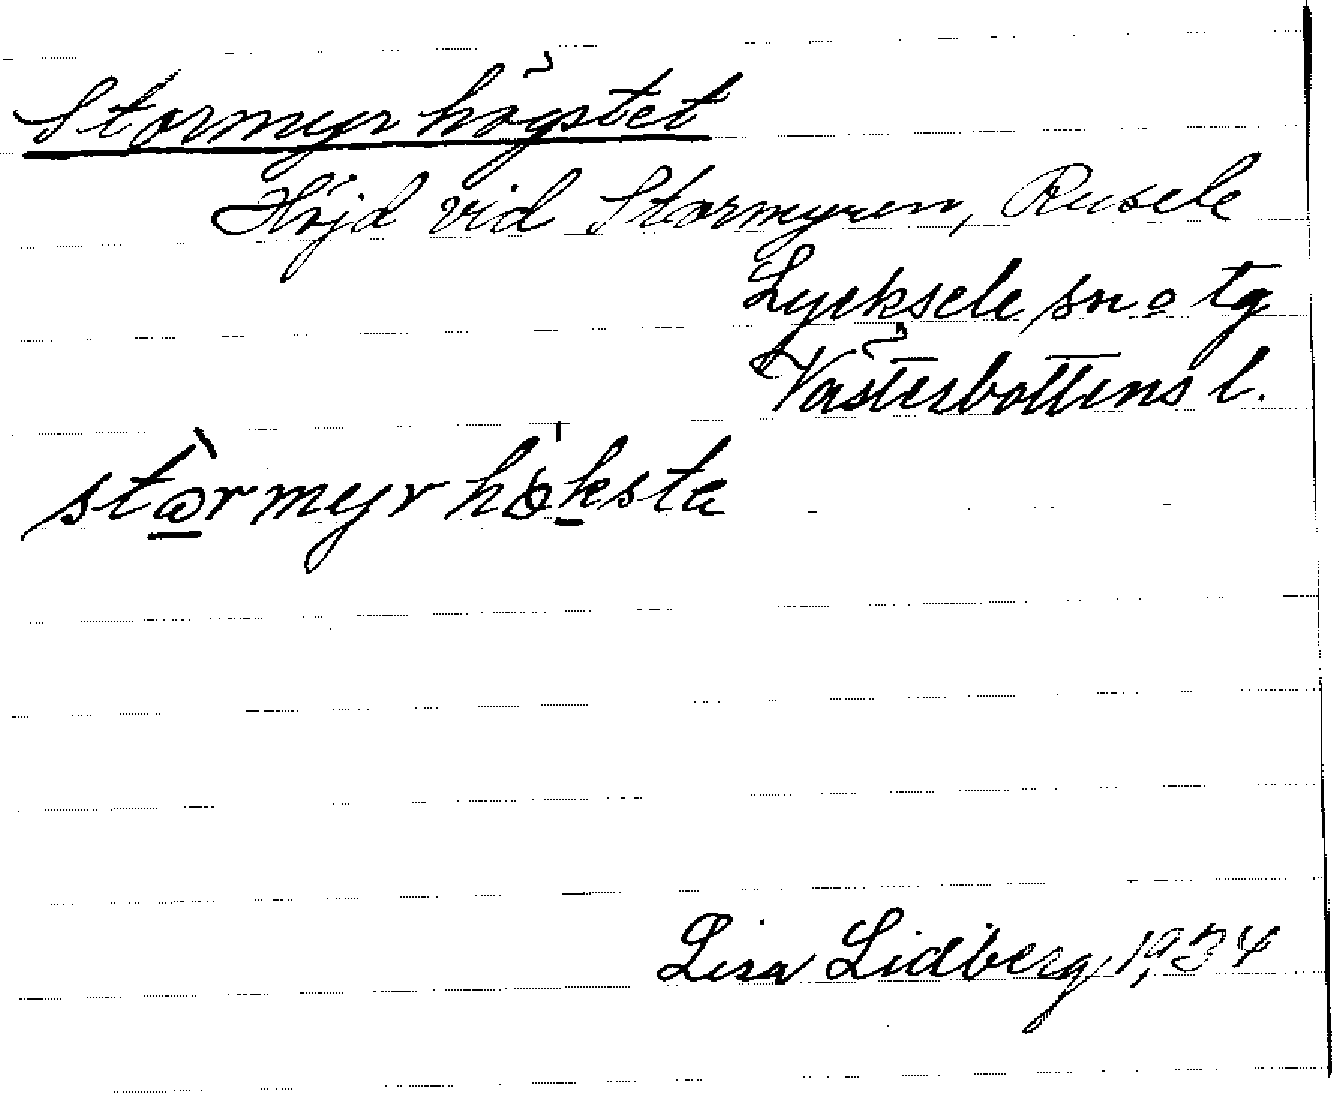 Stormyrhögstet
Höjd vid Stormyren, Rusele
Lycksele sn o tg
Västerbottens l.
stòrmyrhöksta
Lisa Lidberg, 1934